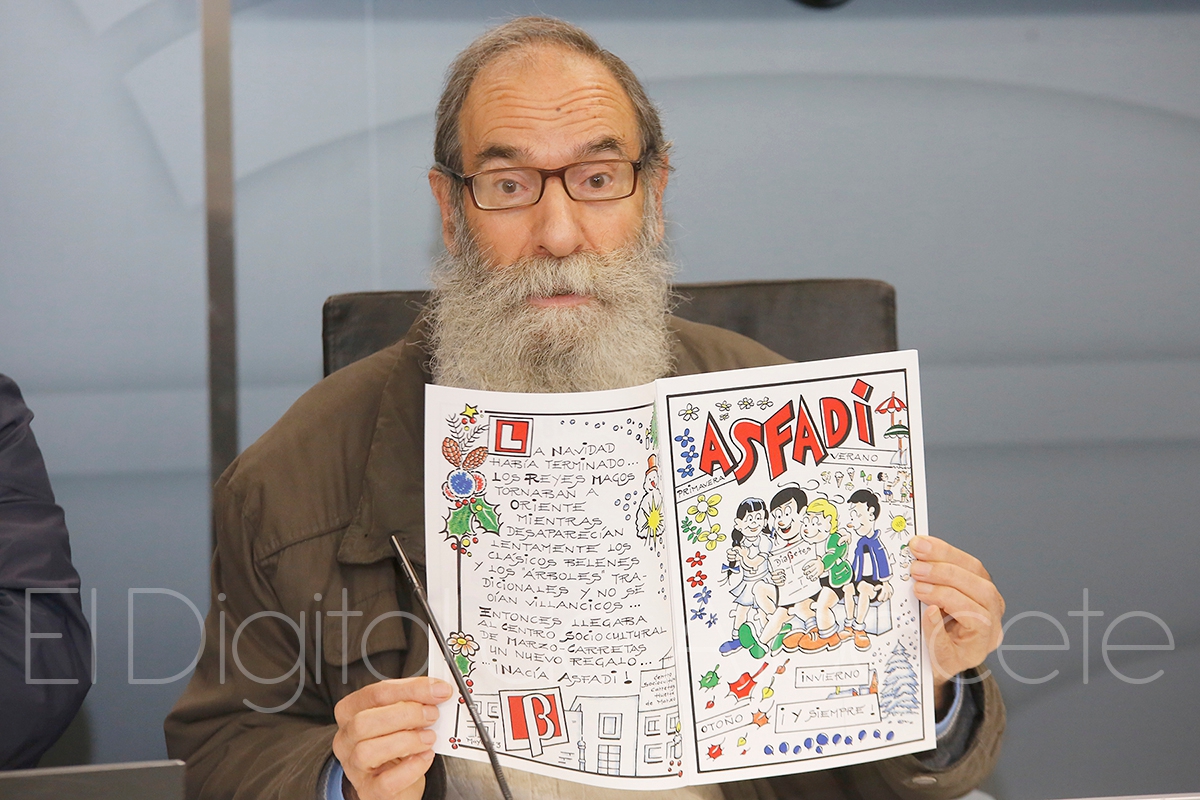 LA NAVIDAD
HABÍA TERMINADO...
LOS REYES MAGOS
TORNABAN A
ORIENTE
MIENTRAS
DESAPARECÍAN
LENTAMENTE LOS
CLÁSICOS BELENES
Y LOS "ÁRBOLES" TRA-
DICIONALES Y NO SE
OÍAN VILLANCICOS...
ENTONCES LLEGABA
AL CENTRO SOCIOCULTURAL
DE MARZO-CARRETAS
UN NUEVO REGALO...
¡NACÍA ASFADI!
Centro
Carretas
ASFADI
VERANO
PRIMAVERA
Diabetes
INVIERNO
OTOÑO
¡Y SIEMPRE!
El Digital
cete